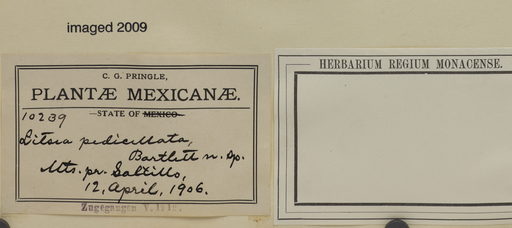 imaged 2009
C. G. PRINGLE,
PLANTÆ MEXICANÆ.
STATE OF MEXICO
10239
Litsea pedicellata,
Bartlett n. sp.
Mts. pr. Saltillo,
12, April, 1906.
Zugegangen V.
HERBARIUM REGIUM MONACENSE.